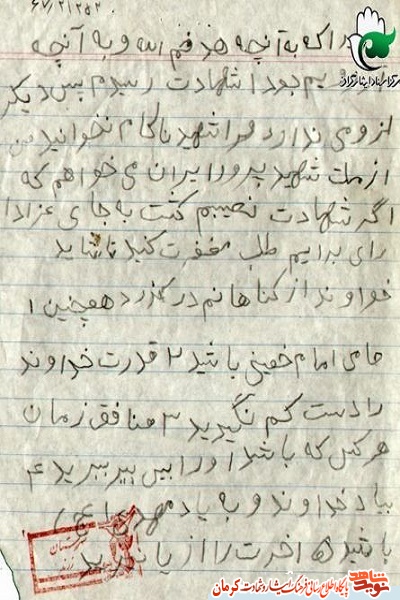 چرا که به آنچه هدفم الله و به آنچه
بود شهادت رسیدم پس دیگر
لزومی ندارد مرا شهید ناکام نخوانید من
از ملت شهید پرور ایران می خواهم که
اگر شهادت نصیبم گشت به جای عزادا
رای برایم طلب مغفرت کنید تا شاید
خداوند از گناهانم درگذرد همچنین ۱
حامی امام خمینی باشید ۲ قدرت خداوند
را دست کم نگیرید ۳ منافق زمان
هر کس که باشد او را بین ببرید ۴
بیاد خداوند و به یاد مهدی (عج)
باشید ۵ اخرت را از یاد نبرید
نوید شاهد
پایگاه اطلاع رسانی فرهنگ ایثار و شهادت کرمان